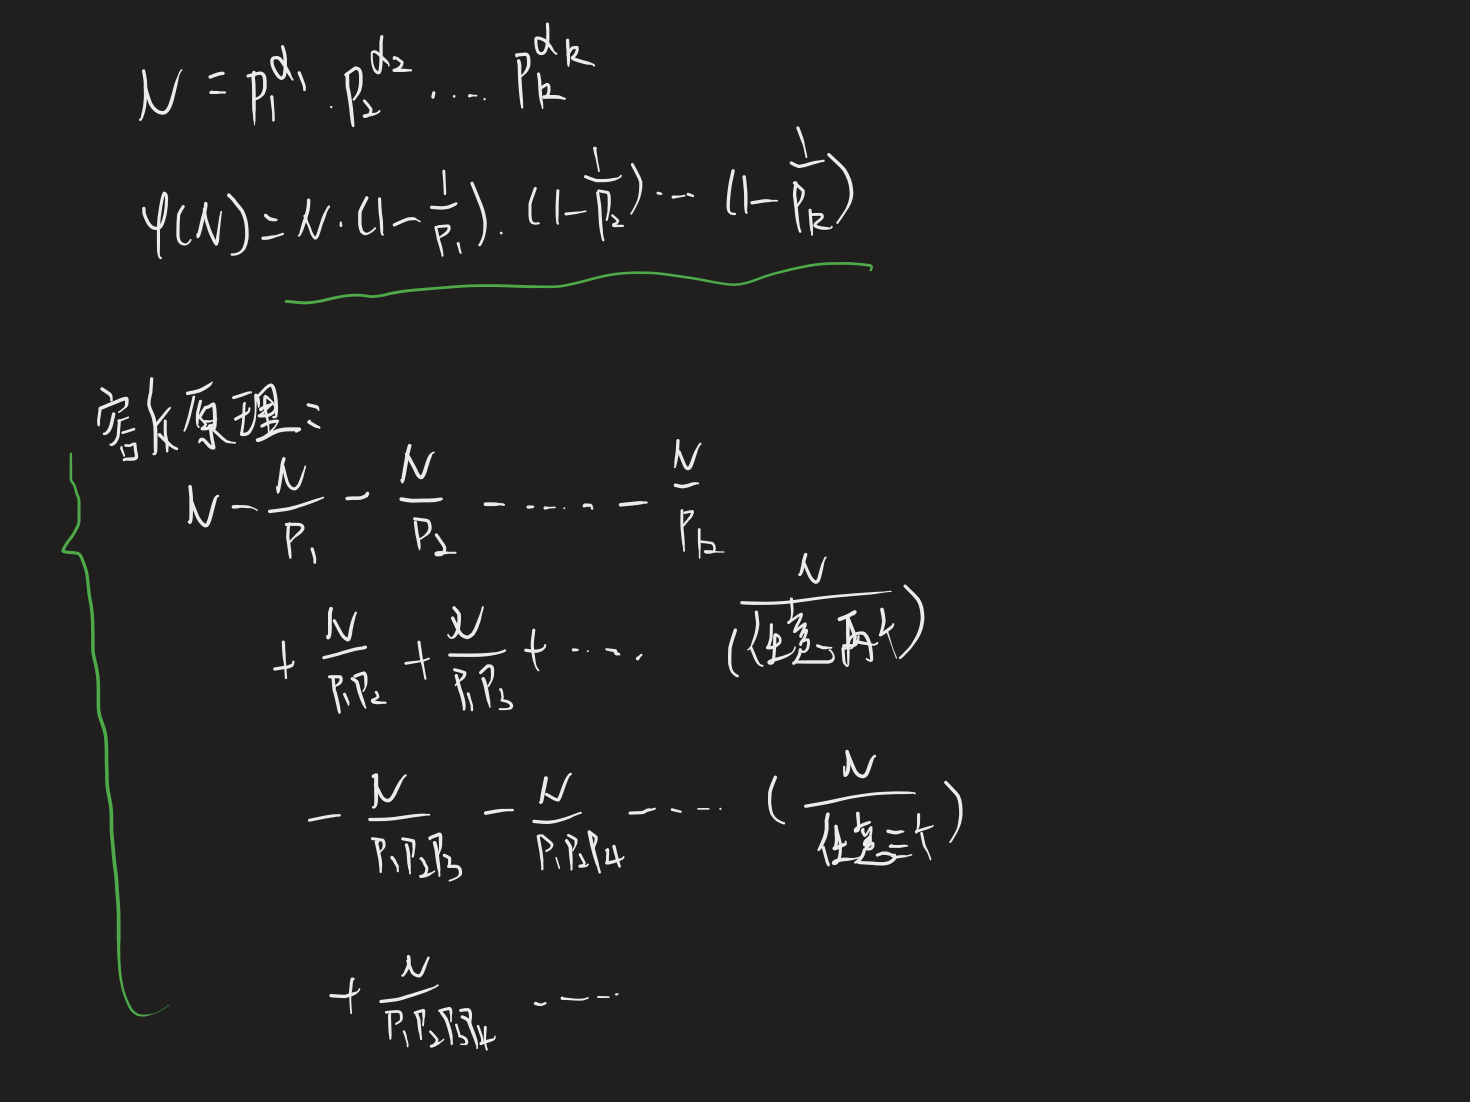 N = p₁^α₁ · p₂^α₂ ····· p_k^α_k
φ(N) = N · (1 - 1/p₁) · (1 - 1/p₂) ··· (1 - 1/p_k)
容斥原理:
N - N/p₁ - N/p₂ - ····· - N/p_k
+ N/p₁p₂ + N/p₁p₃ + ···· (N/任意两个)
- N/p₁p₂p₃ - N/p₁p₂p₄ - ···· (N/任意三个)
+ N/p₁p₂p₃p₄ ····